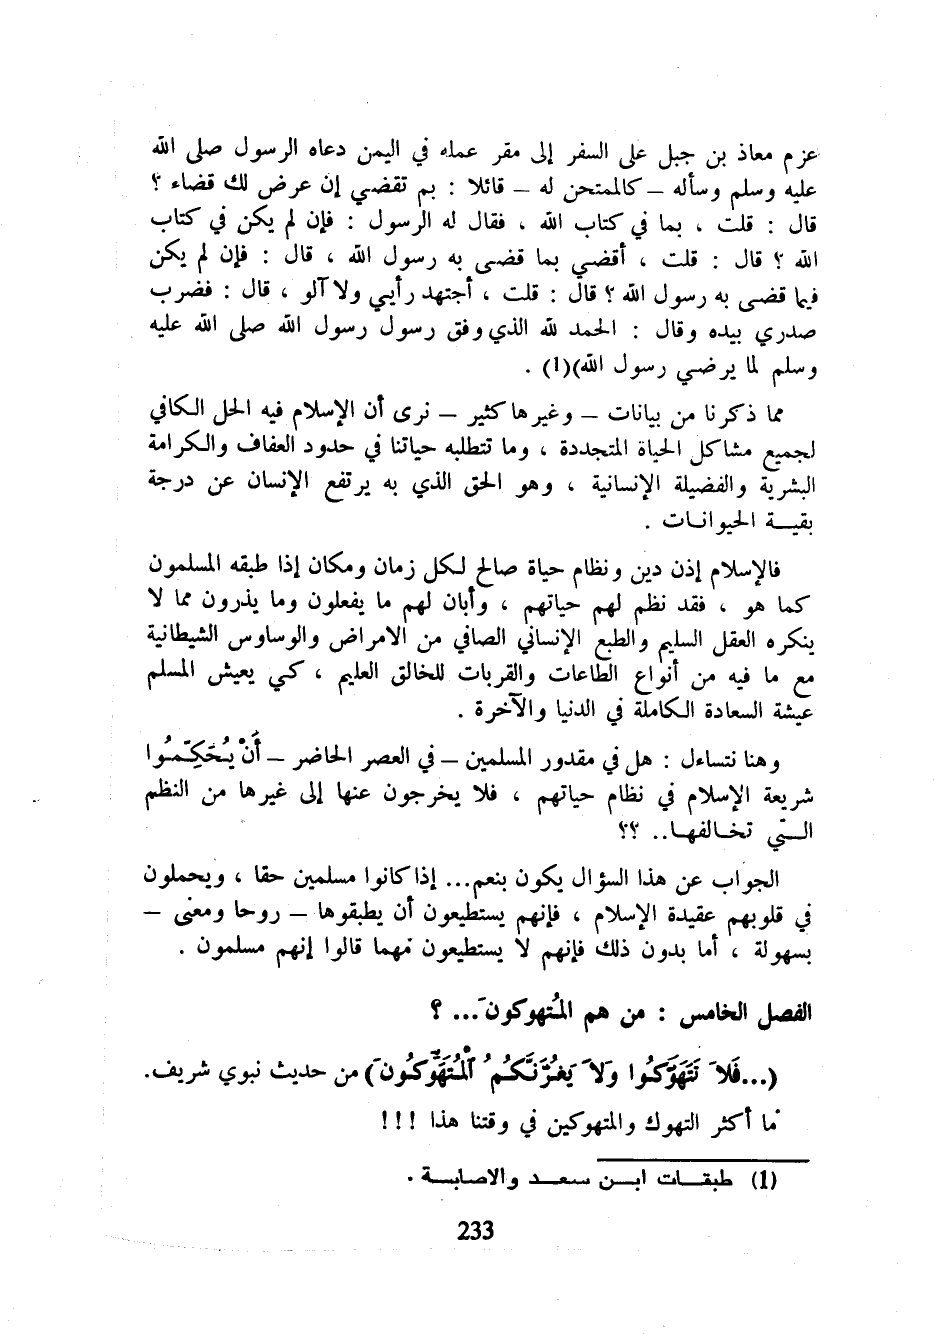 عزم معاذ بن جبل على السفر إلى مقر عمله في اليمن دعاه الرسول صلى الله
عليه وسلم وسأله – كالممتحن له – قائلا : بم تقضي إن عرض لك قضاء ؟
قال : قلت ، بما في كتاب الله ، فقال له الرسول : فإن لم يكن في كتاب
الله ؟ قال : قلت ، أقضي بما قضى به رسول الله ، قال : فإن لم يكن
فيما قضى به رسول الله ؟ قال : قلت ، أجتهد رأيي ولا آلو ، قال : فضرب
صدري بيده وقال : الحمد لله الذي وفق رسول رسول الله صلى الله عليه
وسلم لما يرضي رسول الله)(1) .
مما ذكرنا من بيانات – وغيرها كثير – نرى أن الإسلام فيه الحل الكافي
لجميع مشاكل الحياة المتجددة ، وما تتطلبه حياتنا في حدود العفاف والكرامة
البشرية والفضيلة الإنسانية ، وهو الحق الذي به يرتفع الإنسان عن درجة
بقيـة الحيوانـات .
فالإسلام إذن دين ونظام حياة صالح لكل زمان ومكان إذا طبقه المسلمون
كما هو ، فقد نظم لهم حياتهم ، وأبان لهم ما يفعلون وما يذرون مما لا
ينكره العقل السليم والطبع الإنساني الصافي من الامراض والوساوس الشيطانية
مع ما فيه من أنواع الطاعات والقربات للخالق العليم ، كي يعيش المسلم
عيشة السعادة الكاملة في الدنيا والآخرة .
وهنا نتساءل : هل في مقدور المسلمين – في العصر الحاضر – أَنْ يُحَكِّمُوا
شريعة الإسلام في نظام حياتهم ، فلا يخرجون عنها إلى غيرها من النظم
الـتي تخـالفهـا.. ؟؟
الجواب عن هذا السؤال يكون بنعم... إذا كانوا مسلمين حقا ، ويحملون
في قلوبهم عقيدة الإسلام ، فإنهم يستطيعون أن يطبقوها – روحا ومعنى –
بسهولة ، أما بدون ذلك فإنهم لا يستطيعون مهما قالوا إنهم مسلمون .
الفصل الخامس : من هم المُتهوكونَ... ؟
(...فَلاَ تَتَهَوَّكُوا وَلاَ يَغُرَّنَّكُمُ ٱلْمُتَهَوِّكُونَ) من حديث نبوي شريف.
ما أكثر التهوك والمتهوكين في وقتنا هذا !!!
(1) طبقـات ابـن سعـد والاصابـة .
233